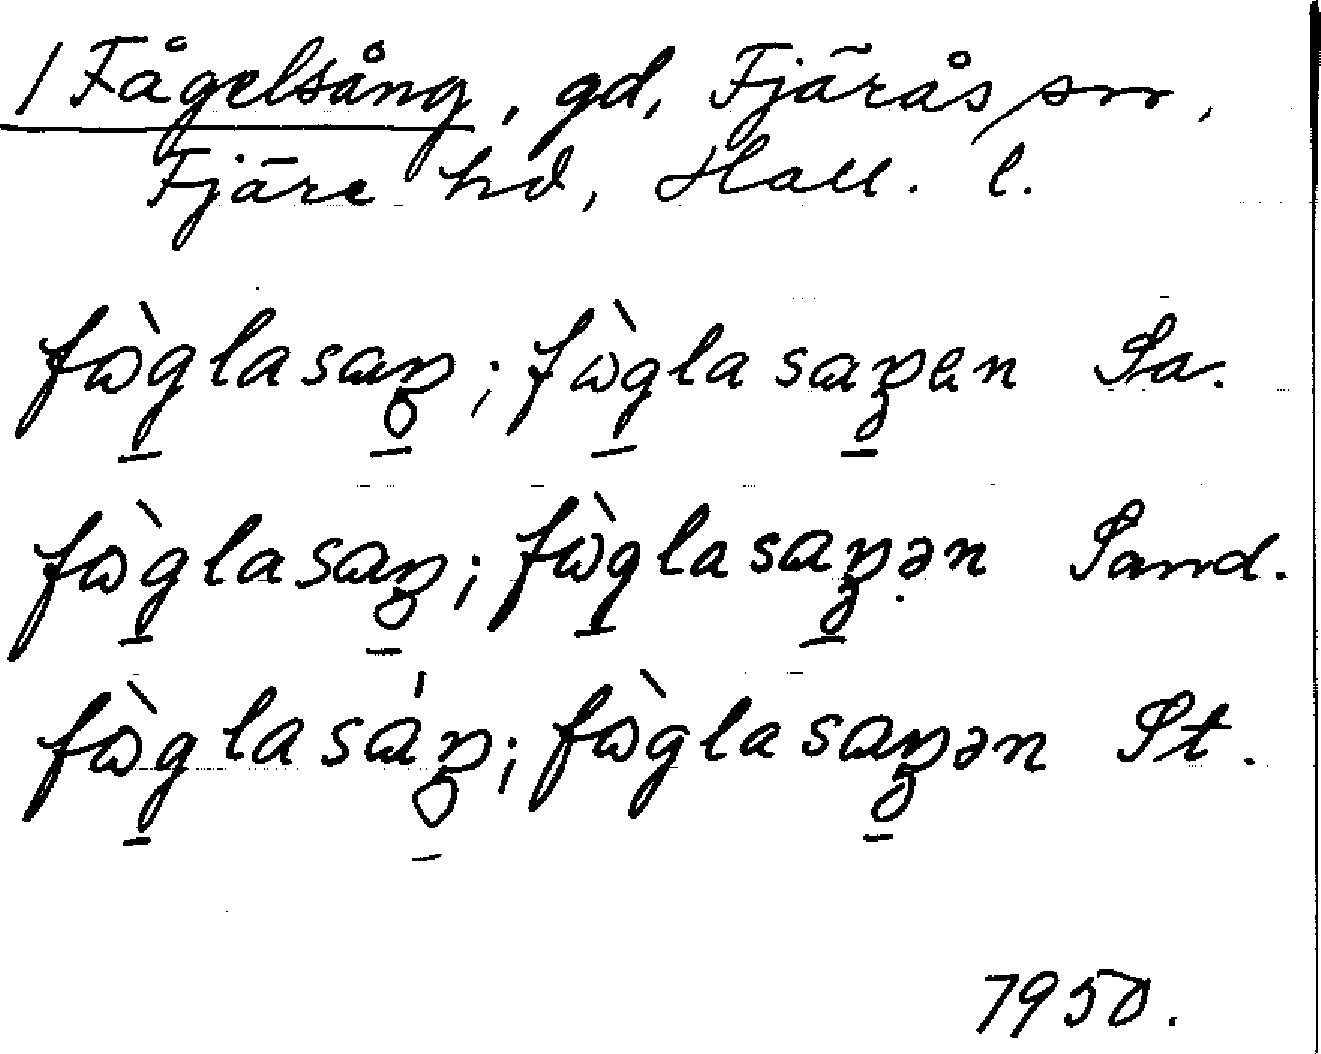 / Fågelsång, gd, Fjärås sn,
Fjäre hd, Hall. l.
fὼg̱lasaŋ̱; fὼg̱lasaŋ̱en Sa.
fὼg̱lasaŋ̱; fὼg̱lasaŋ̱ən Sand.
fὼg̱lasáŋ̱; fὼglasaŋ̱ən St.
1950.